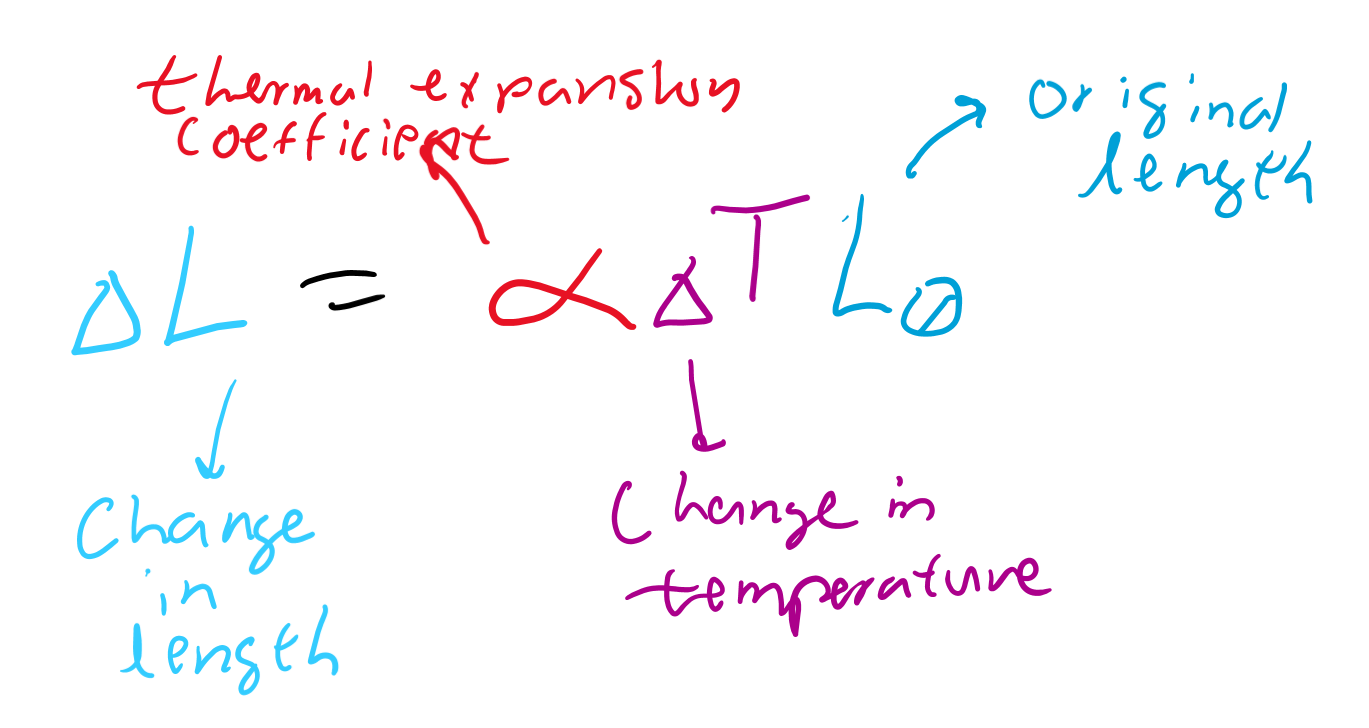 thermal expansion
coefficient
original
length
ΔL = αΔTL₀
Change
in
length
Change in
temperature